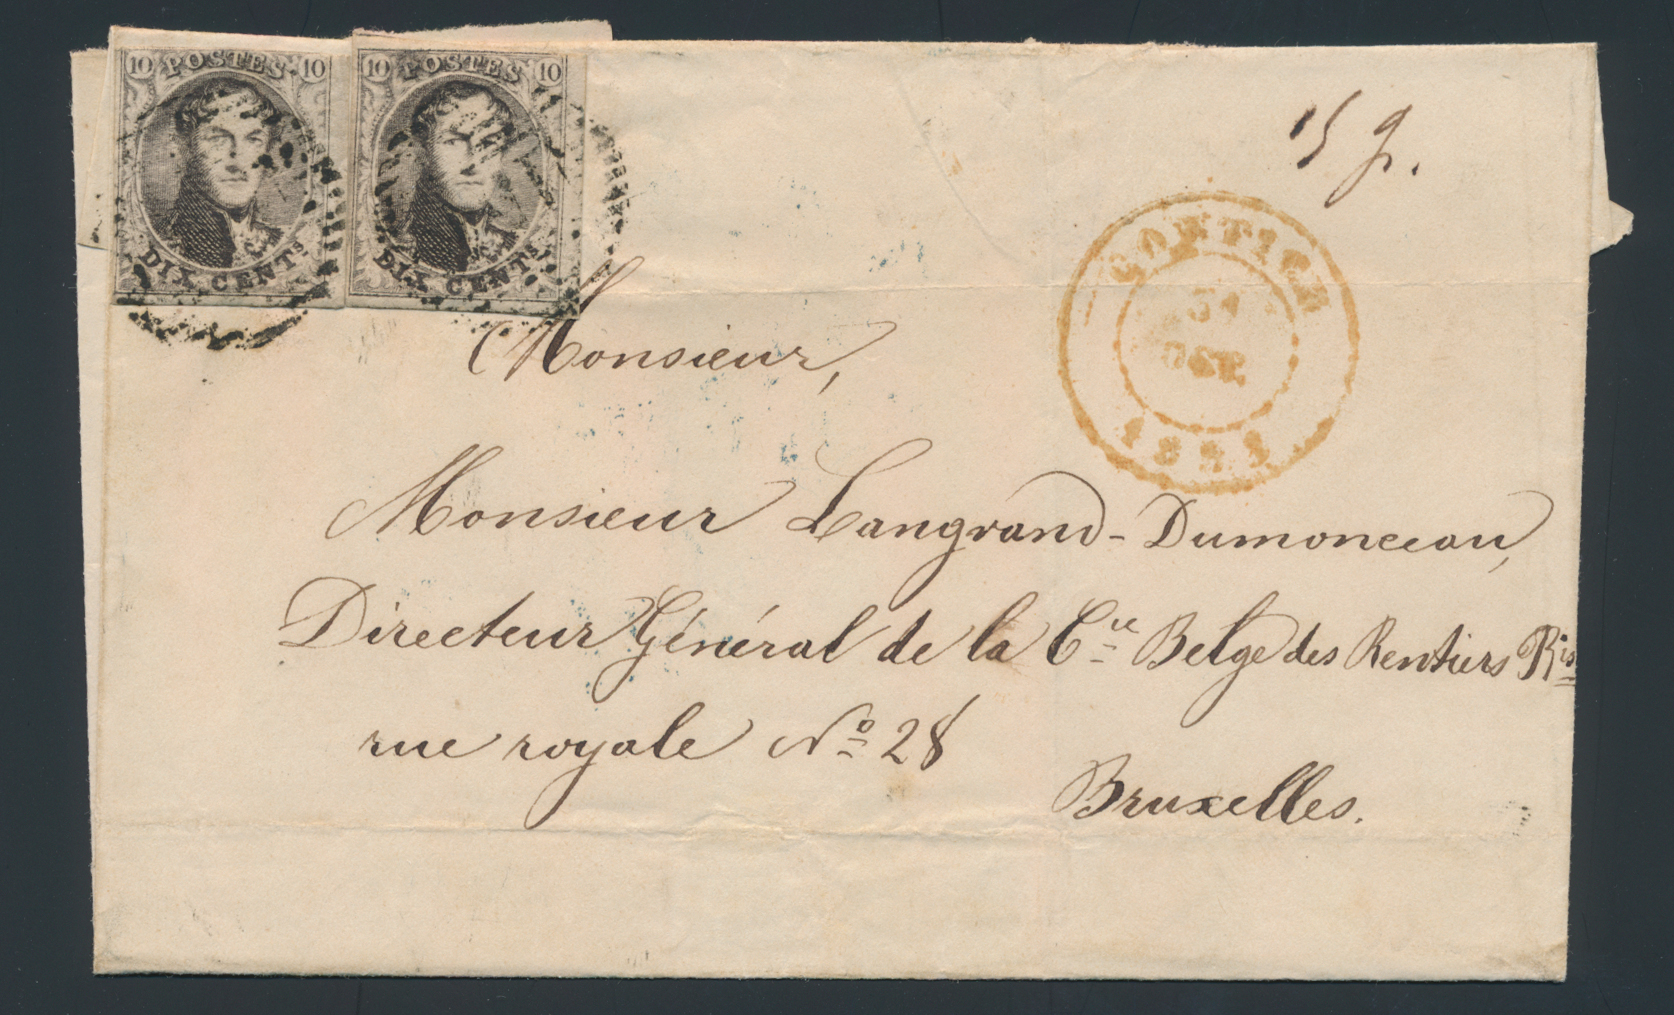 10 POSTES 10
DIX CENTS
10 POSTES 10
DIX CENTS
15 g.
CONTICH
31
OCT.
Monsieur,
Monsieur Langrand-Dumonceau,
Directeur Général de la Cie Belge des Rentiers Ris
rue royale No 28
Bruxelles.